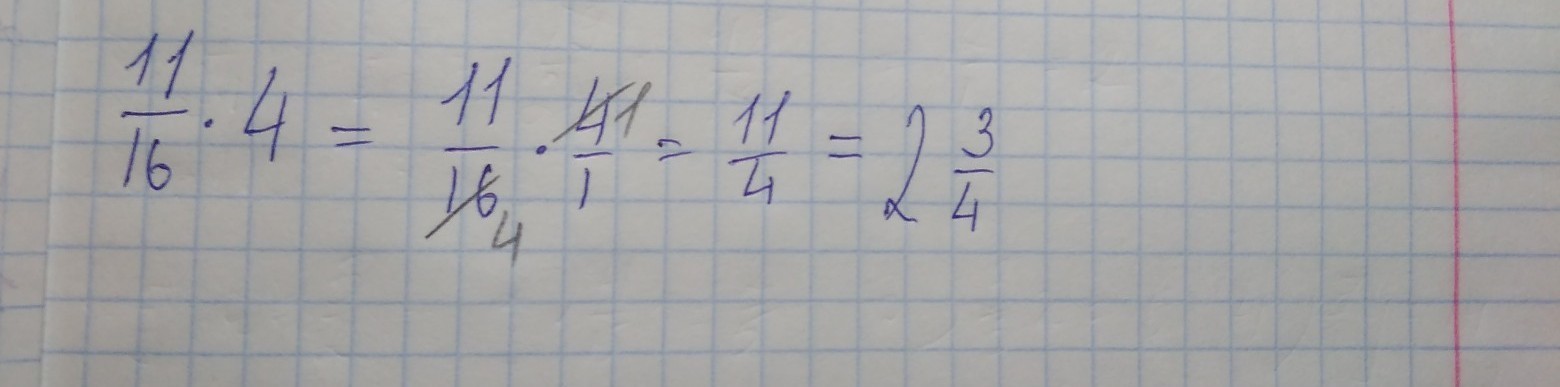 11/16 · 4 = 11/16 4 · 4 1/1 = 11/4 = 2 3/4